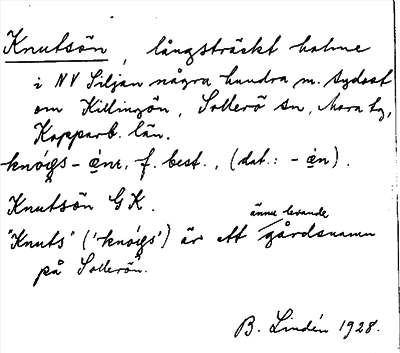 Knutsön, långsträckt holme
i NV Siljan några hundra m. sydost
om Killingön, Sollerö sn, Mora tg,
Kopparb. län.
knogs-ęnr, f. best., (dat.: -ęn).
Knutsön GK.
"Knuts" ('knogs') är ett ännu levande gårdsnamn
på Sollerön.
B. Lindén 1928.